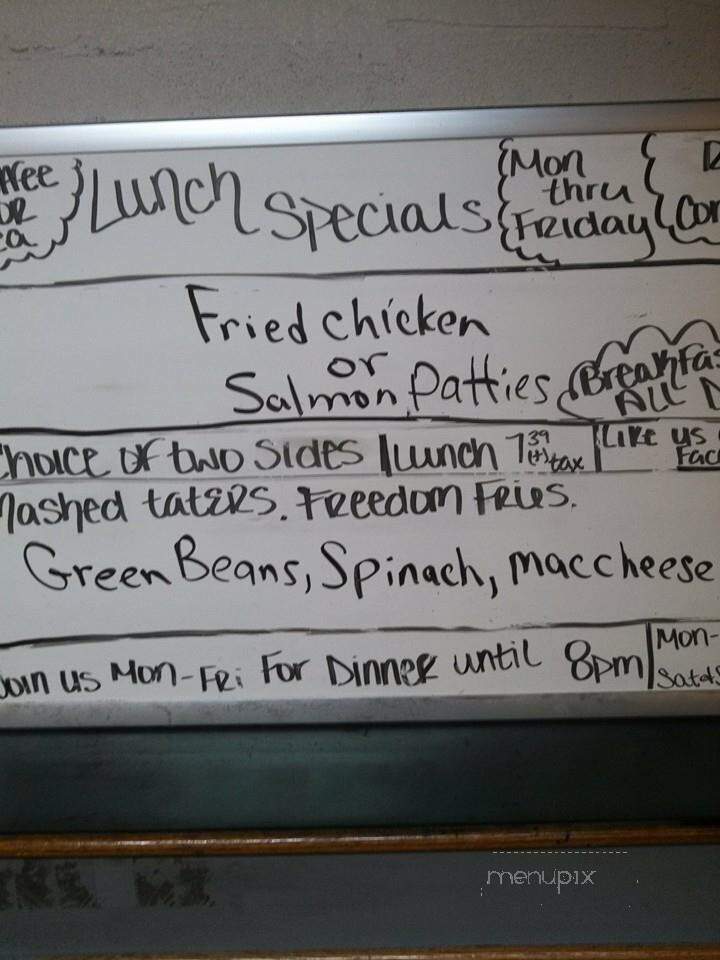 Lunch Specials
Mon
thru
Friday
Fried chicken
or
Salmon Patties
ALL
choice of two sides
Lunch 7 39 (+) tax
Like us
Mashed taters. Freedom Fries.
Green Beans, Spinach, maccheese
Join us Mon-Fri For Dinner until 8pm
Mon-
menupix